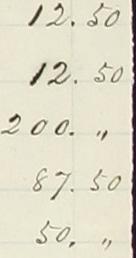 12. 50
12. 50
200. "
87. 50
50. "